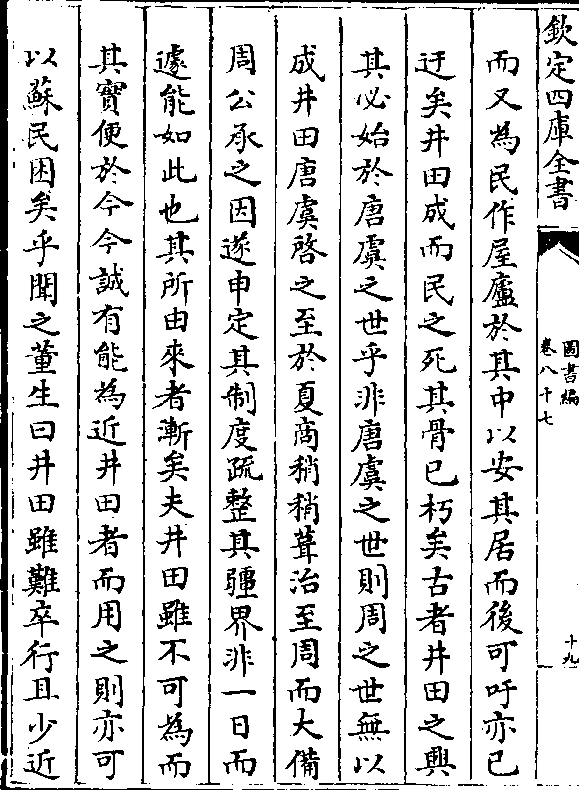 欽定四庫全書
圖書編
卷八十七
十九
而又為民作屋廬於其中以安其居而後可吁亦已
迂矣井田成而民之死其骨已朽矣古者井田之興
其必始於唐虞之世乎非唐虞之世則周之世無以
成井田唐虞啓之至於夏商稍稍葺治至周而大備
周公承之因遂申定其制度疏整其疆界非一日而
遽能如此也其所由來者漸矣夫井田雖不可為而
其實便於今今誠有能為近井田者而用之則亦可
以蘇民困矣乎聞之董生曰井田雖難卒行且少近